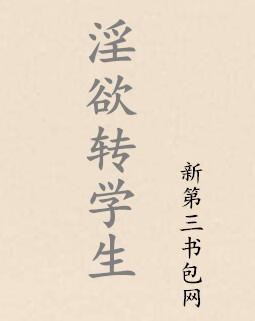 淫欲转学生
新第三书包网